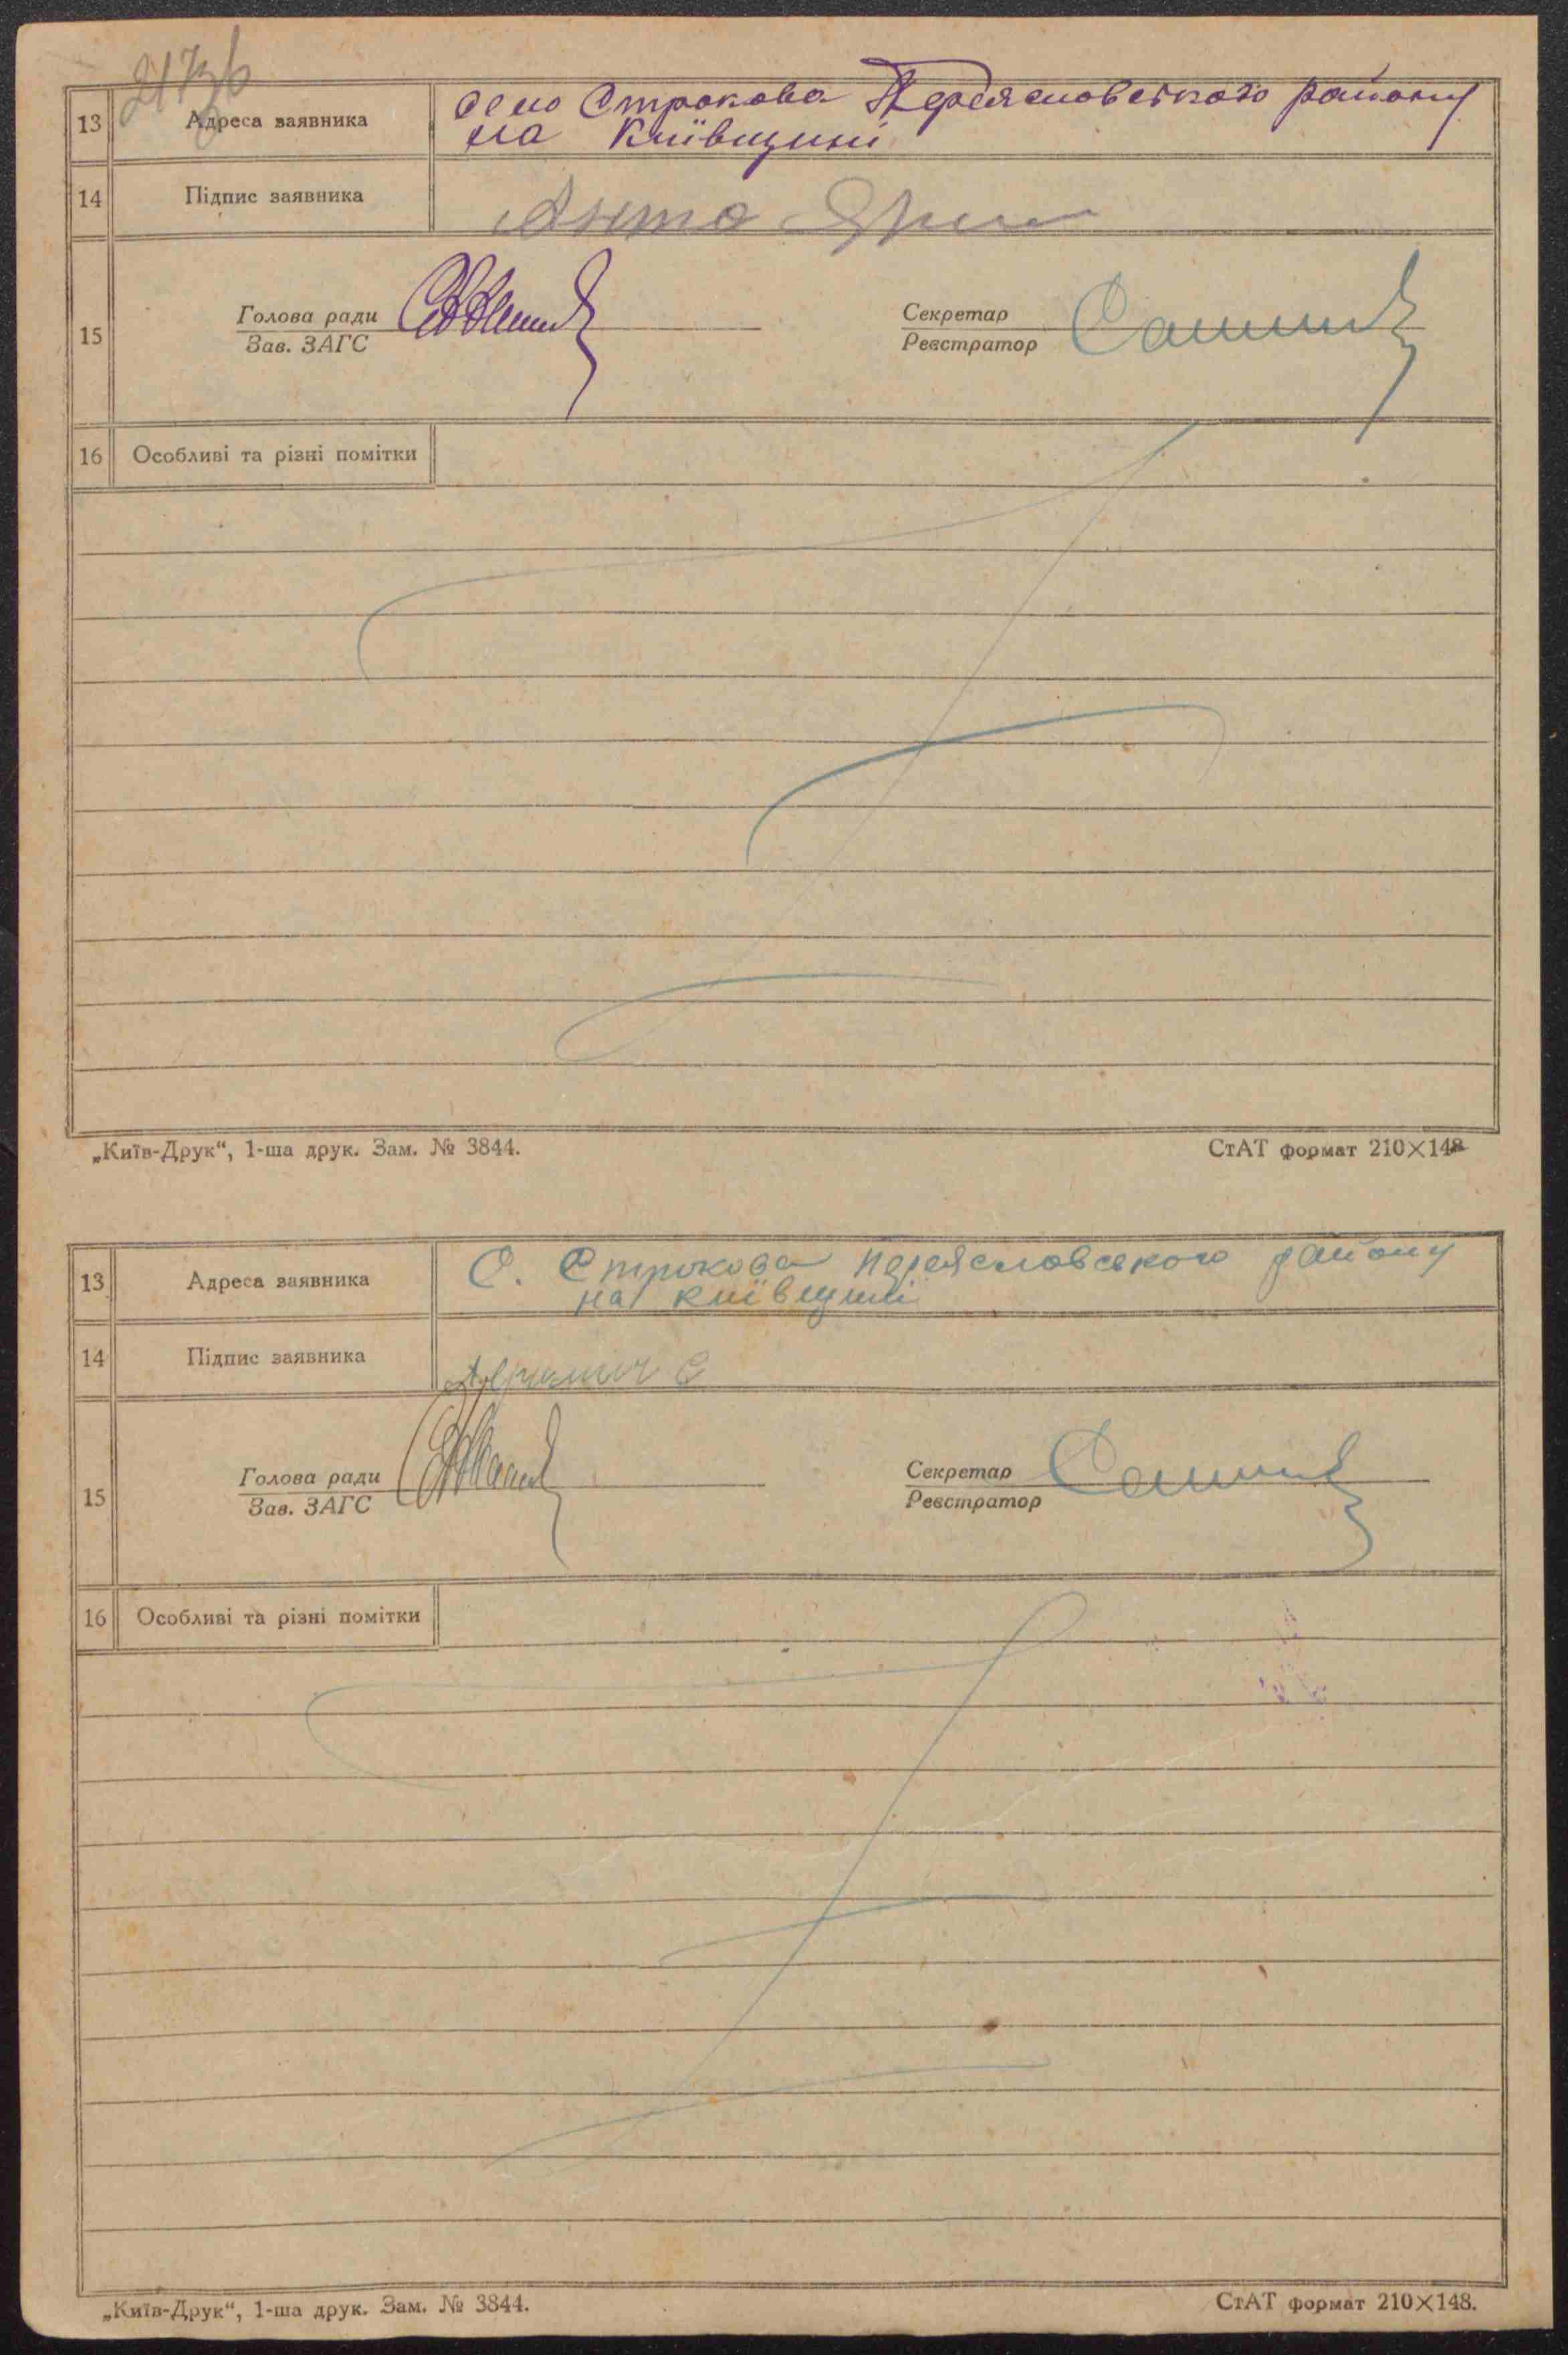 217зв
13 Адреса заявника село Строкова Переясловського району
на Київщині
14 Підпис заявника
15 Голова ради
Зав. ЗАГС
Секретар
Реєстратор
16 Особливі та різні помітки
„Київ-Друк“, 1-ша друк. Зам. № 3844. СтАТ формат 210×148
13 Адреса заявника С. Строкова Переясловського району
на київщині
14 Підпис заявника
15 Голова ради
Зав. ЗАГС
Секретар
Реєстратор
16 Особливі та різні помітки
„Київ-Друк“, 1-ша друк. Зам. № 3844. СтАТ формат 210×148.